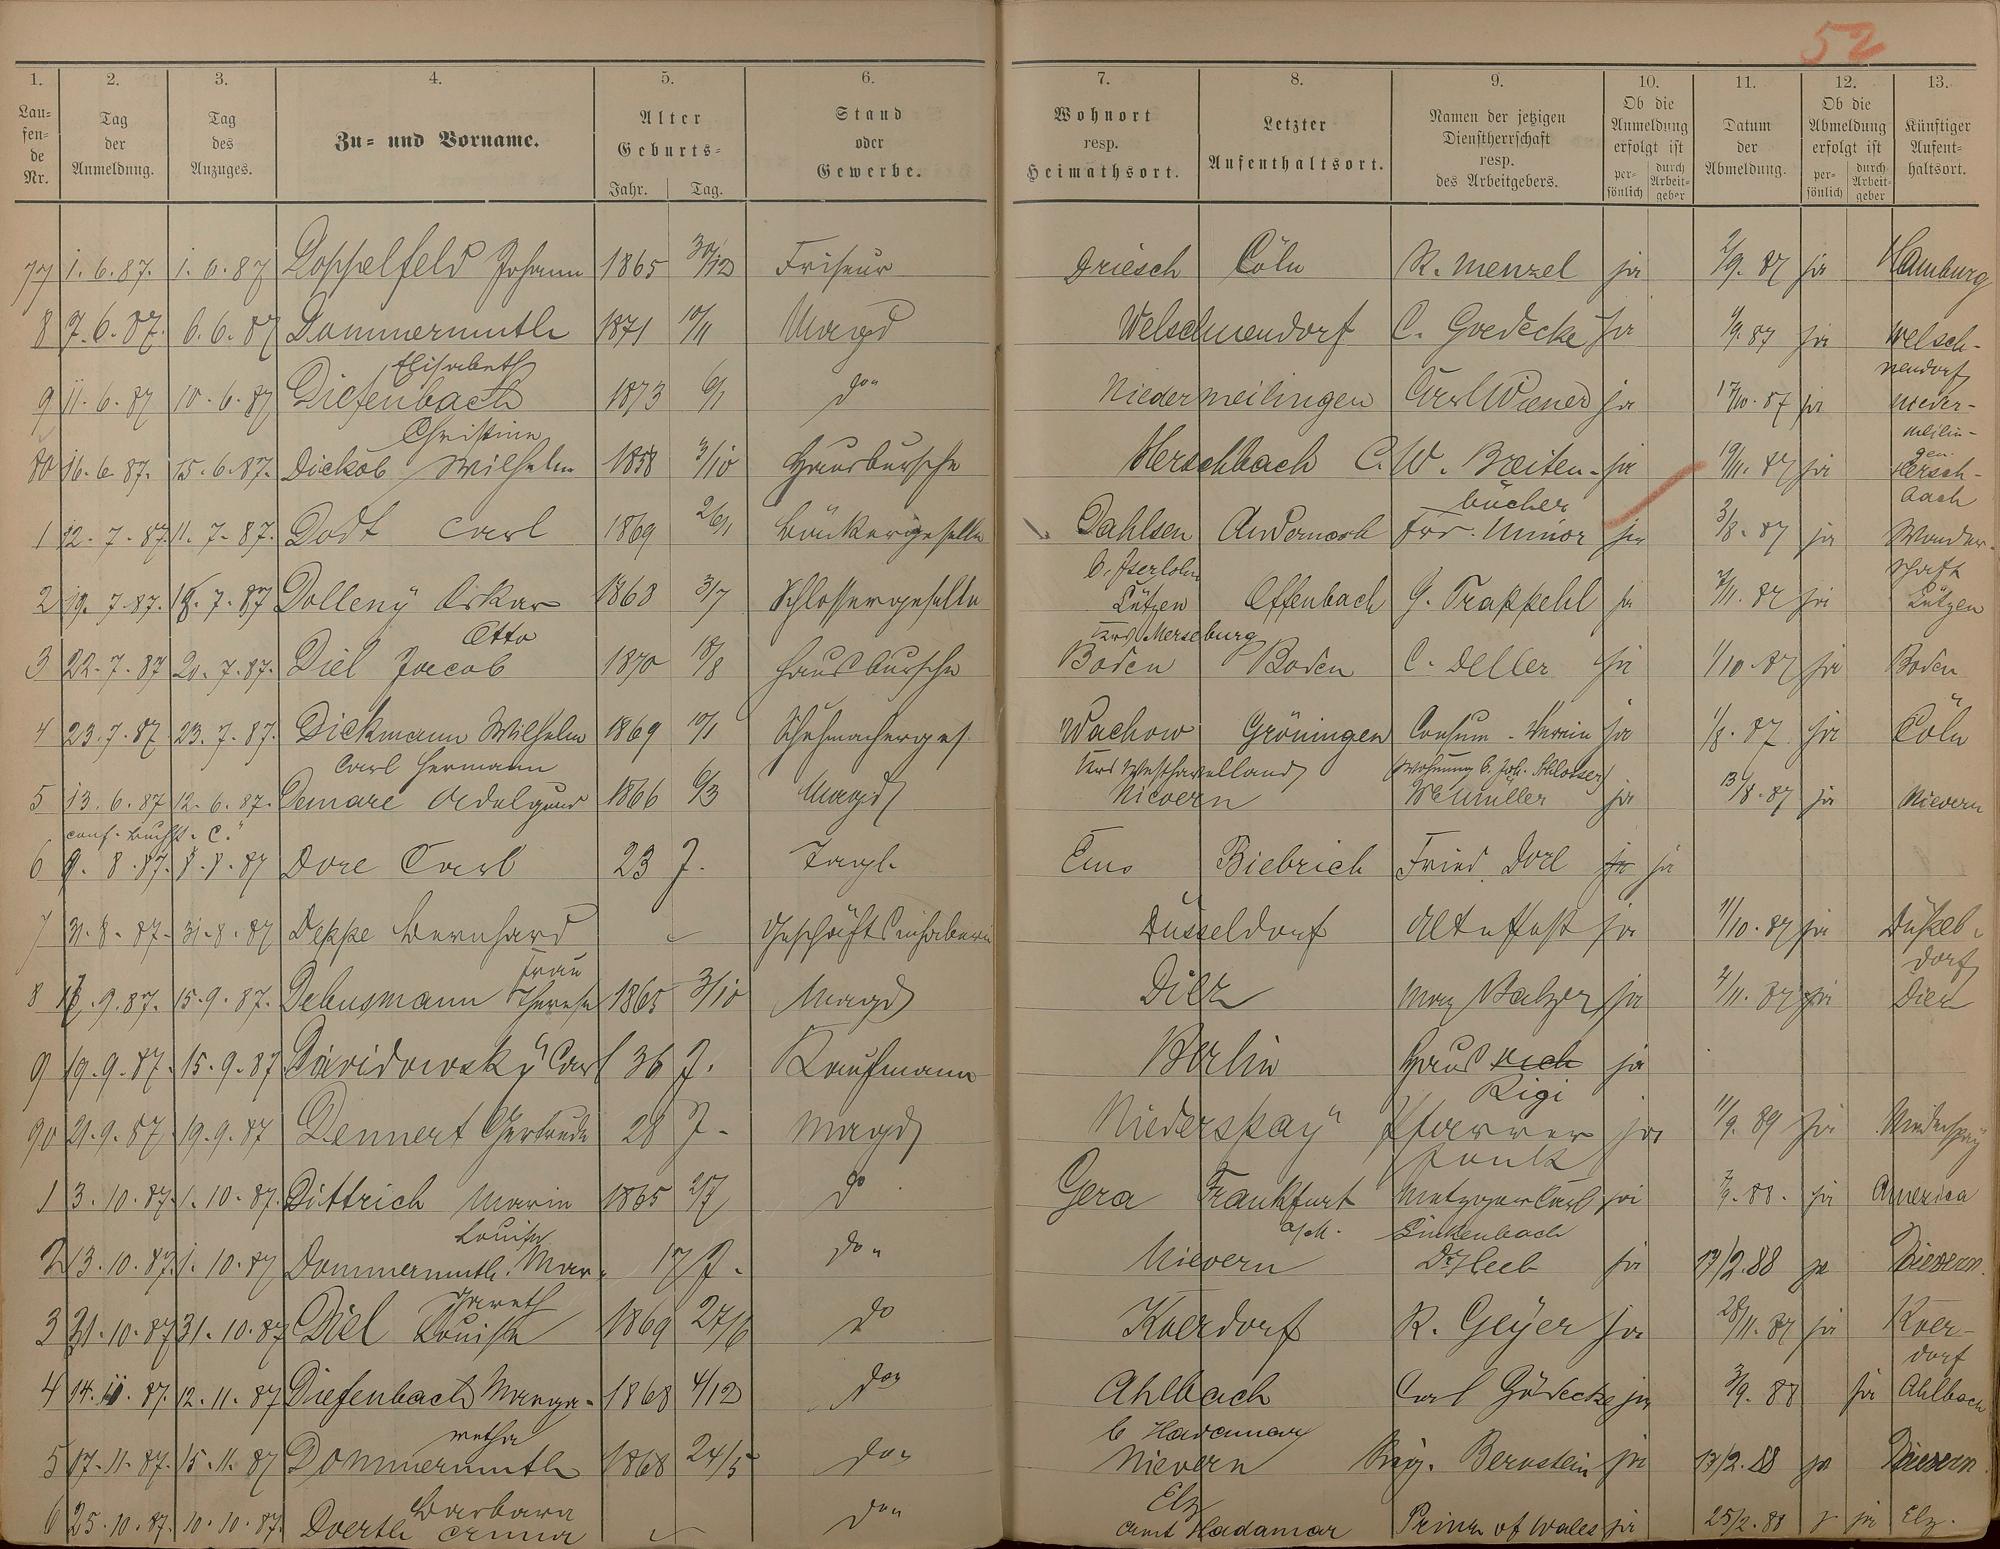 52
1. 2. 3. 4. 5. 6. 7. 8. 9. 10. 11. 12. 13.
Laufende Nr. Tag der Anmeldung. Tag des Anzuges. Zu- und Vorname. Alter Geburts- Jahr. Tag. Stand oder Gewerbe. Wohnort resp. Heimathsort. Letzter Aufenthaltsort. Namen der jetzigen Dienstherrschaft resp. des Arbeitgebers. Ob die Anmeldung erfolgt ist persönlich durch Arbeitgeber Datum der Abmeldung. Ob die Abmeldung erfolgt ist persönlich durch Arbeitgeber Künftiger Aufenthaltsort.
77 1. 6. 87. 1. 6. 87 Doppelfeld Johann 1865 30/12 Friseur Driesch Cöln R. Menzel ja 2/9. 87 ja Hamburg
8 7. 6. 87. 6. 6. 87 Dommermuth 1871 10/11 Magd Welschnendorf C. Goedecke ja 1/9 87 ja Welsch-
Elisabeth nendorf
9 11. 6. 87 10. 6. 87 Diefenbach 1873 6/1 do" Niedermeilingen Carl Wiener ja 17/10. 87 ja Nieder-
Christine meilin-
gen
80 16. 6. 87. 15. 6. 87. Dickob Wilhelm 1858 3/10 Hausbursche Herschbach C. W. Breiten- ja 19/11. 87 ja Hersch-
bücher bach
1 12. 7. 87. 11. 7. 87. Dodt Carl 1869 26/1 Bäckergeselle Dahlsen Andernach Frz. Minor ja 3/8. 87 ja Wander-
b. Iserlohn schaft
2 19. 7. 87. 18. 7. 87 Dolleny Oskar 1868 3/7 Schlossergeselle Lützen Offenbach G. Trappehl ja 7/11. 87 ja Lützen
Otto Krs Merseburg
3 22. 7. 87 20. 7. 87. Diel Jacob 1870 18/8 Hausbursche Boden Boden C. Deller ja 1/10. 87 ja Boden
4 23. 7. 87 23. 7. 87. Dickmann Wilhelm 1869 10/1 Schuhmacherges. Wachow Gröningen Consum-Verein ja 1/8. 87 ja Cöln
Carl Hermann Krs Westhavelland (Wohnung b. Joh. Schlosser)
5 13. 6. 87 12. 6. 87. Demare Adelgund 1866 6/3 Magd Nievern We Müller ja 13/8. 87 ja Nievern
conf. Buchst. C."
6 9. 8. 87. 8. 8. 87 Dore Carl 23 J. Tagl. Ems Biebrich Fried. Dorl ja ja
7 31. 8. 87. 31. 8. 87 Deppe Bernhard Geschäftsinhaberin Düsseldorf ja 1/10. 87 ja Düssel-
Frau dorf
8 17. 9. 87. 15. 9. 87. Debusmann Therese 1865 3/10 Magd Diez Max Balzer ja 4/11. 87 ja Diez
9 19. 9. 87. 15. 9. 87 Davidowsky Carl 36 J. Kaufmann Berlin Haus Rich ja
Rigi
90 21. 9. 87 19. 9. 87 Dennert Gertrude 28 J. Magd Niederspay Pfarrer ja 11/9. 89 ja Niederspay
1 3. 10. 87. 1. 10. 87. Dittrich Marie 1865 2/7 do Gera Frankfurt Metzger Carl ja 88. ja America
Louise a/M. Linkenbach
2 13. 10. 87. 1. 10. 87 Dommermuth Mar- 17 J. do" Nievern Dr Heeb ja 17/2. 88 ja Nievern.
gareth
3 31. 10. 87 31. 10. 87 Diel Louise 1869 27/6 do Koerdorf R. Geyer ja 28/11. 87 ja Koer-
dorf
4 14. 11. 87. 12. 11. 87 Diefenbach Marga- 1868 4/12 do" Ahlbach Carl Gödecke ja 3/9. 88 ja Ahlbach
retha b Hadamar
5 17. 11. 87. 15. 11. 87 Dommermuth 1868 24/5 do" Nievern Bernstein ja 17/2. 88 ja Nievern
Barbara Elz
6 25. 10. 87. 10. 10. 87. Doerth Anna do" Amt Hadamar Prince of Wales ja 25/2. 88 ja Elz.